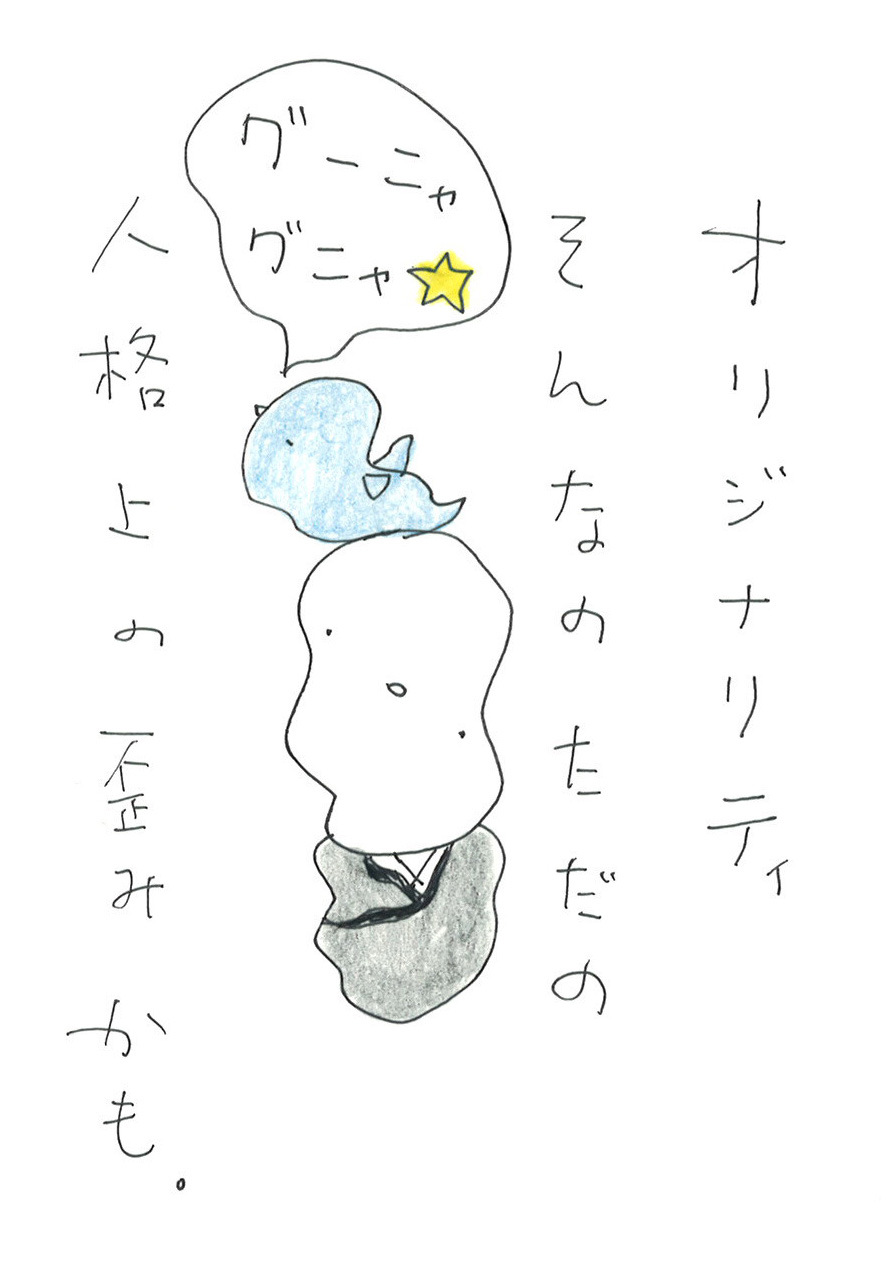 オリジナリティ
そんなのただの
グーニャ
グニャ
人格上の歪みかも。